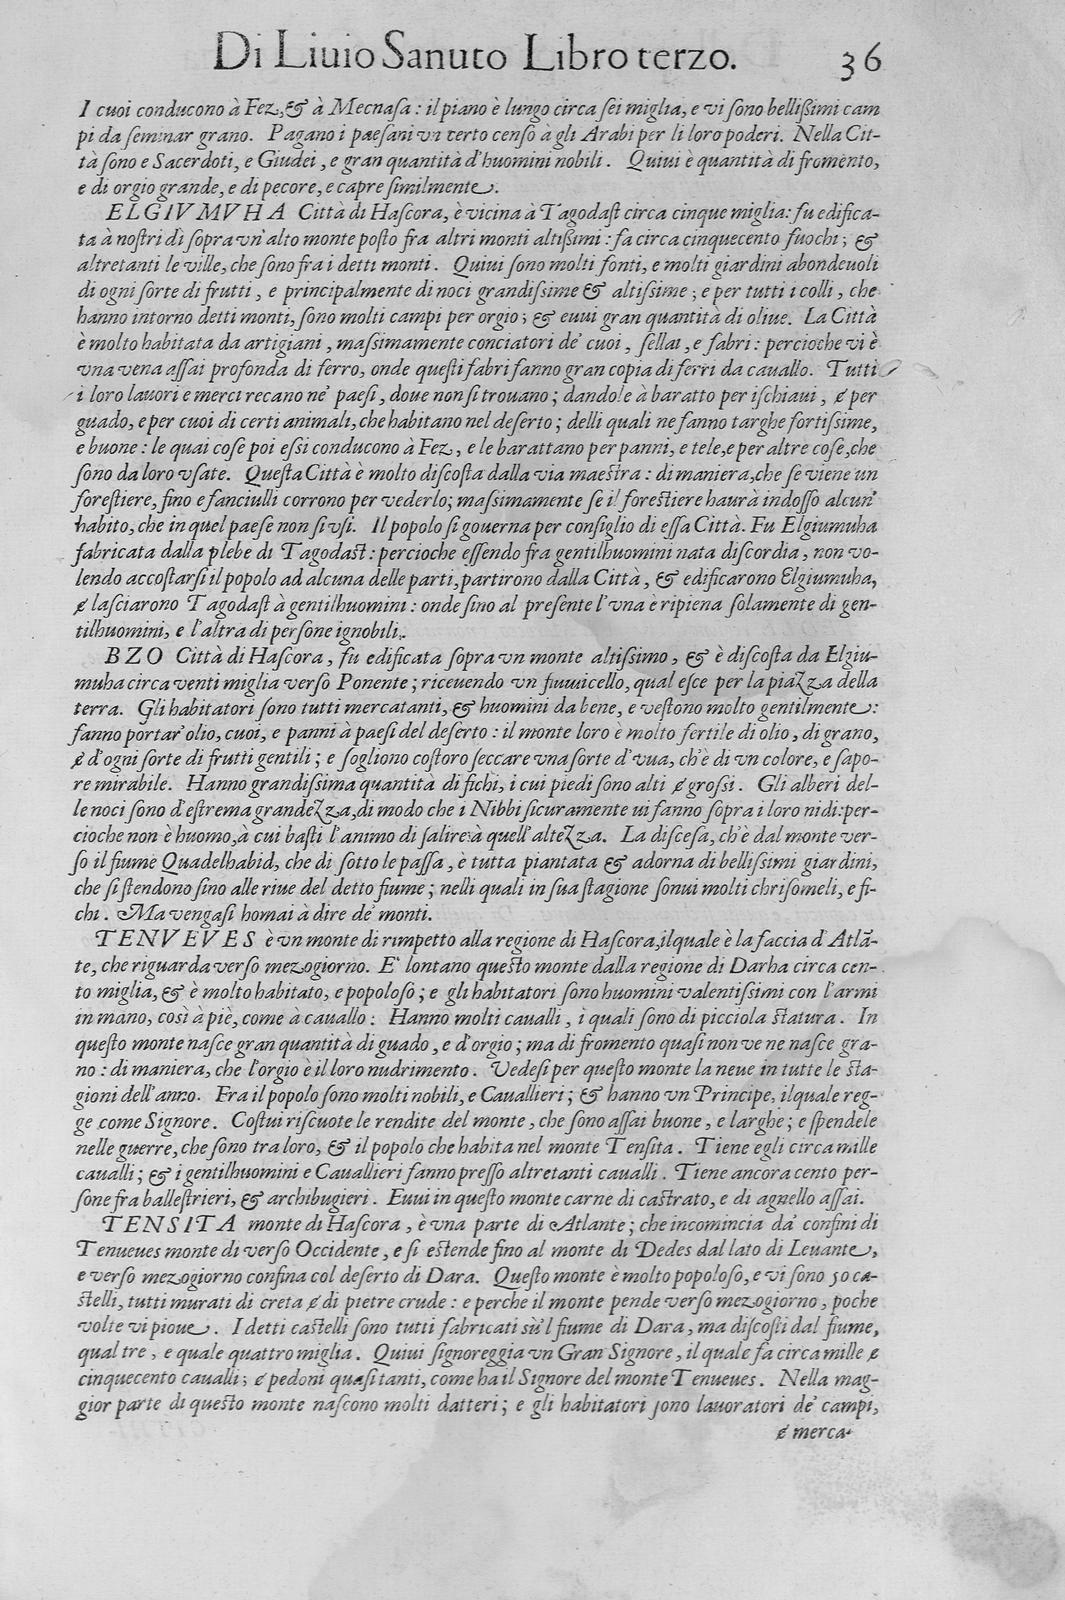 Di Liuio Sanuto Libro terzo. 36
I cuoi conducono à Fez, & à Mecnasa: il piano è lungo circa sei miglia, e vi sono bellißimi cam
pi da seminar grano. Pagano i paesani vn certo censo à gli Arabi per li loro poderi. Nella Cit-
tà sono e Sacerdoti, e Giudei, e gran quantità d'huomini nobili. Quiui è quantità di fromento,
e di orgio grande, e di pecore, e capre similmente.
ELGIVMVHA Città di Hascora, è vicina à Tagodast circa cinque miglia: fu edifica-
ta à nostri dì sopra vn'alto monte posto fra altri monti altißimi: fa circa cinquecento fuochi; &
altretanti le ville, che sono fra i detti monti. Quiui sono molti fonti, e molti giardini abondeuoli
di ogni sorte di frutti, e principalmente di noci grandissime & altissime; e per tutti i colli, che
hanno intorno detti monti, sono molti campi per orgio; & euui gran quantità di oliue. La Città
è molto habitata da artigiani, massimamente conciatori de' cuoi, sellai, e fabri: percioche vi è
vna vena assai profonda di ferro, onde questi fabri fanno gran copia di ferri da cauallo. Tutti
i loro lauori e merci recano ne' paesi, doue non si trouano; dandole à baratto per ischiaui, & per
guado, e per cuoi di certi animali, che habitano nel deserto; delli quali ne fanno targhe fortissime,
e buone: le quai cose poi essi conducono à Fez, e le barattano per panni, e tele, e per altre cose, che
sono da loro vsate. Questa Città è molto discosta dalla via maestra: di maniera, che se viene un
forestiere, fino e fanciulli corrono per vederlo; massimamente se il forestiere haurà indosso alcun'
habito, che in quel paese non si vsi. Il popolo si gouerna per consiglio di essa Città. Fu Elgiumuha
fabricata dalla plebe di Tagodast: percioche essendo fra gentilhuomini nata discordia, non vo-
lendo accostarsi il popolo ad alcuna delle parti, partirono dalla Città, & edificarono Elgiumuha,
& lasciarono Tagodast à gentilhuomini: onde sino al presente l'vna è ripiena solamente di gen-
tilhuomini, e l'altra di persone ignobili.
BZO Città di Hascora, fu edificata sopra vn monte altissimo, & è discosta da Elgiu-
muha circa venti miglia verso Ponente; riceuendo vn fiumicello, qual esce per la piazza della
terra. Gli habitatori sono tutti mercatanti, & huomini da bene, e vestono molto gentilmente:
fanno portar'olio, cuoi, e panni à paesi del deserto: il monte loro è molto fertile di olio, di grano,
& d'ogni sorte di frutti gentili; e sogliono costoro seccare vna sorte d'vua, ch'è di vn colore, e sapo-
re mirabile. Hanno grandissima quantità di fichi, i cui piedi sono alti & grossi. Gli alberi del-
le noci sono d'estrema grandezza, di modo che i Nibbi sicuramente ui fanno sopra i loro nidi: per-
cioche non è huomo, à cui basti l'animo di salire à quell'altezza. La discesa, ch'è dal monte ver-
so il fiume Quadelhabid, che di sotto le passa, è tutta piantata & adorna di bellissimi giardini,
che si stendono sino alle riue del detto fiume; nelli quali in sua stagione sonui molti chrisomeli, e fi-
chi. Ma vengasi homai à dire de' monti.
TENVEVES è vn monte di rimpetto alla regione di Hascora, ilquale è la faccia d'Atlã-
te, che riguarda verso mezogiorno. E' lontano questo monte dalla regione di Darha circa cen-
to miglia, & è molto habitato, e popoloso; e gli habitatori sono huomini valentissimi con l'armi
in mano, così à piè, come à cauallo: Hanno molti caualli, i quali sono di picciola statura. In
questo monte nasce gran quantità di guado, e d'orgio; ma di fromento quasi non ve ne nasce gra-
no: di maniera, che l'orgio è il loro nudrimento. Vedesi per questo monte la neue in tutte le sta-
gioni dell'anno. Fra il popolo sono molti nobili, e Cauallieri; & hanno vn Principe, ilquale reg-
ge come Signore. Costui riscuote le rendite del monte, che sono assai buone, e larghe; e spendele
nelle guerre, che sono tra loro, & il popolo che habita nel monte Tensita. Tiene egli circa mille
caualli; & i gentilhuomini e Cauallieri fanno presso altretanti caualli. Tiene ancora cento per-
sone fra ballestrieri, & archibugieri. Euui in questo monte carne di castrato, e di agnello assai.
TENSITA monte di Hascora, è vna parte di Atlante; che incomincia da' confini di
Tenueues monte di verso Occidente, e si estende fino al monte di Dedes dal lato di Leuante,
e verso mezogiorno confina col deserto di Dara. Questo monte è molto popoloso, e vi sono 50 ca-
stelli, tutti murati di creta & di pietre crude: e perche il monte pende verso mezogiorno, poche
volte vi pioue. I detti castelli sono tutti fabricati sù'l fiume di Dara, ma discosti dal fiume,
qual tre, e quale quattro miglia. Quiui signoreggia vn Gran Signore, il quale fa circa mille &
cinquecento caualli; & pedoni quasi tanti, come ha il Signore del monte Tenueues. Nella mag-
gior parte di questo monte nascono molti datteri; e gli habitatori sono lauoratori de' campi,
& merca-